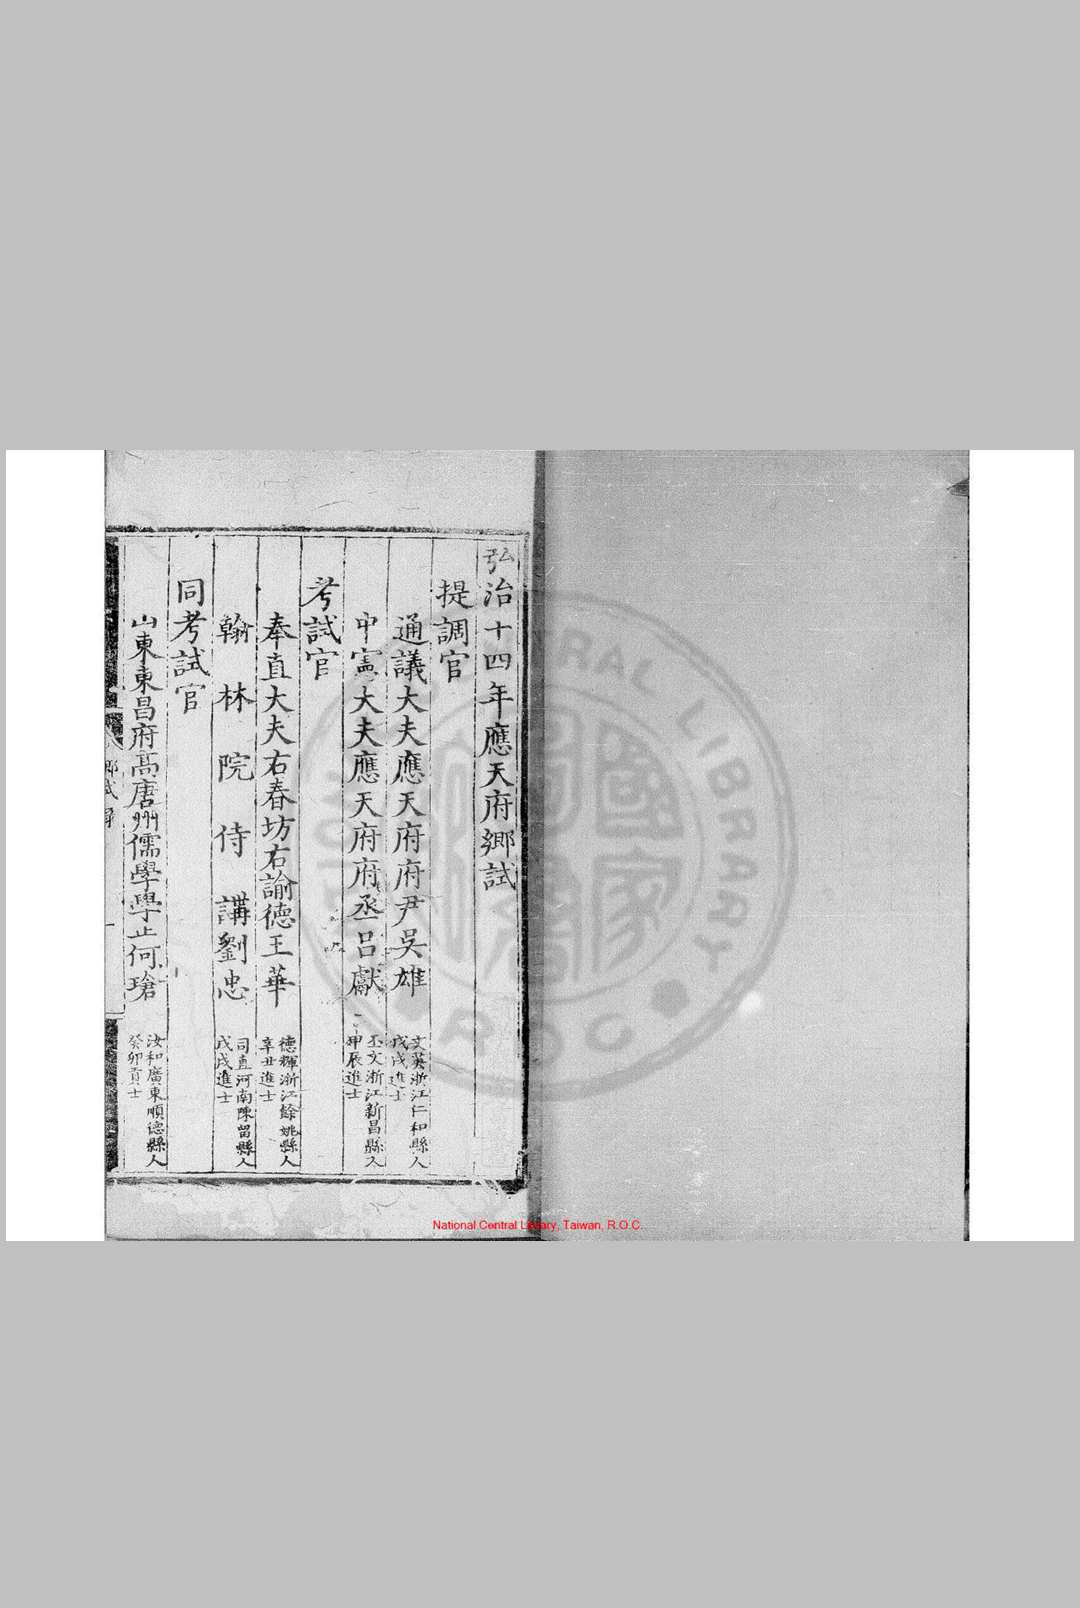 弘治十四年應天府鄉試
提調官
通議大夫應天府府尹吳雄
文英浙江仁和縣人
戊戌進士
中憲大夫應天府府丞呂獻
丕文浙江新昌縣人
甲辰進士
考試官
奉直大夫右春坊右諭德王華
德輝浙江餘姚縣人
辛丑進士
翰林院侍講劉忠
司直河南陳留縣人
戊戌進士
同考試官
山東東昌府高唐州儒學學正何瑲
汝和廣東順德縣人
癸卯貢士
National Central Library, Taiwan, R.O.C.
國家
圖書
CENTRAL LIBRARY
R.O.C